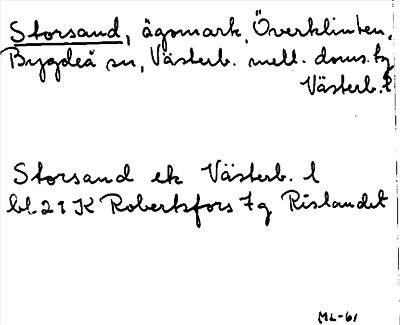 Storsand, ägomark, Överklinten,
Bygdeå sn, Västerb. mell. doms.
Västerb. l
Storsand ek Västerb. l
bl. 21 K Robertsfors 7g Rislandet
ML-61